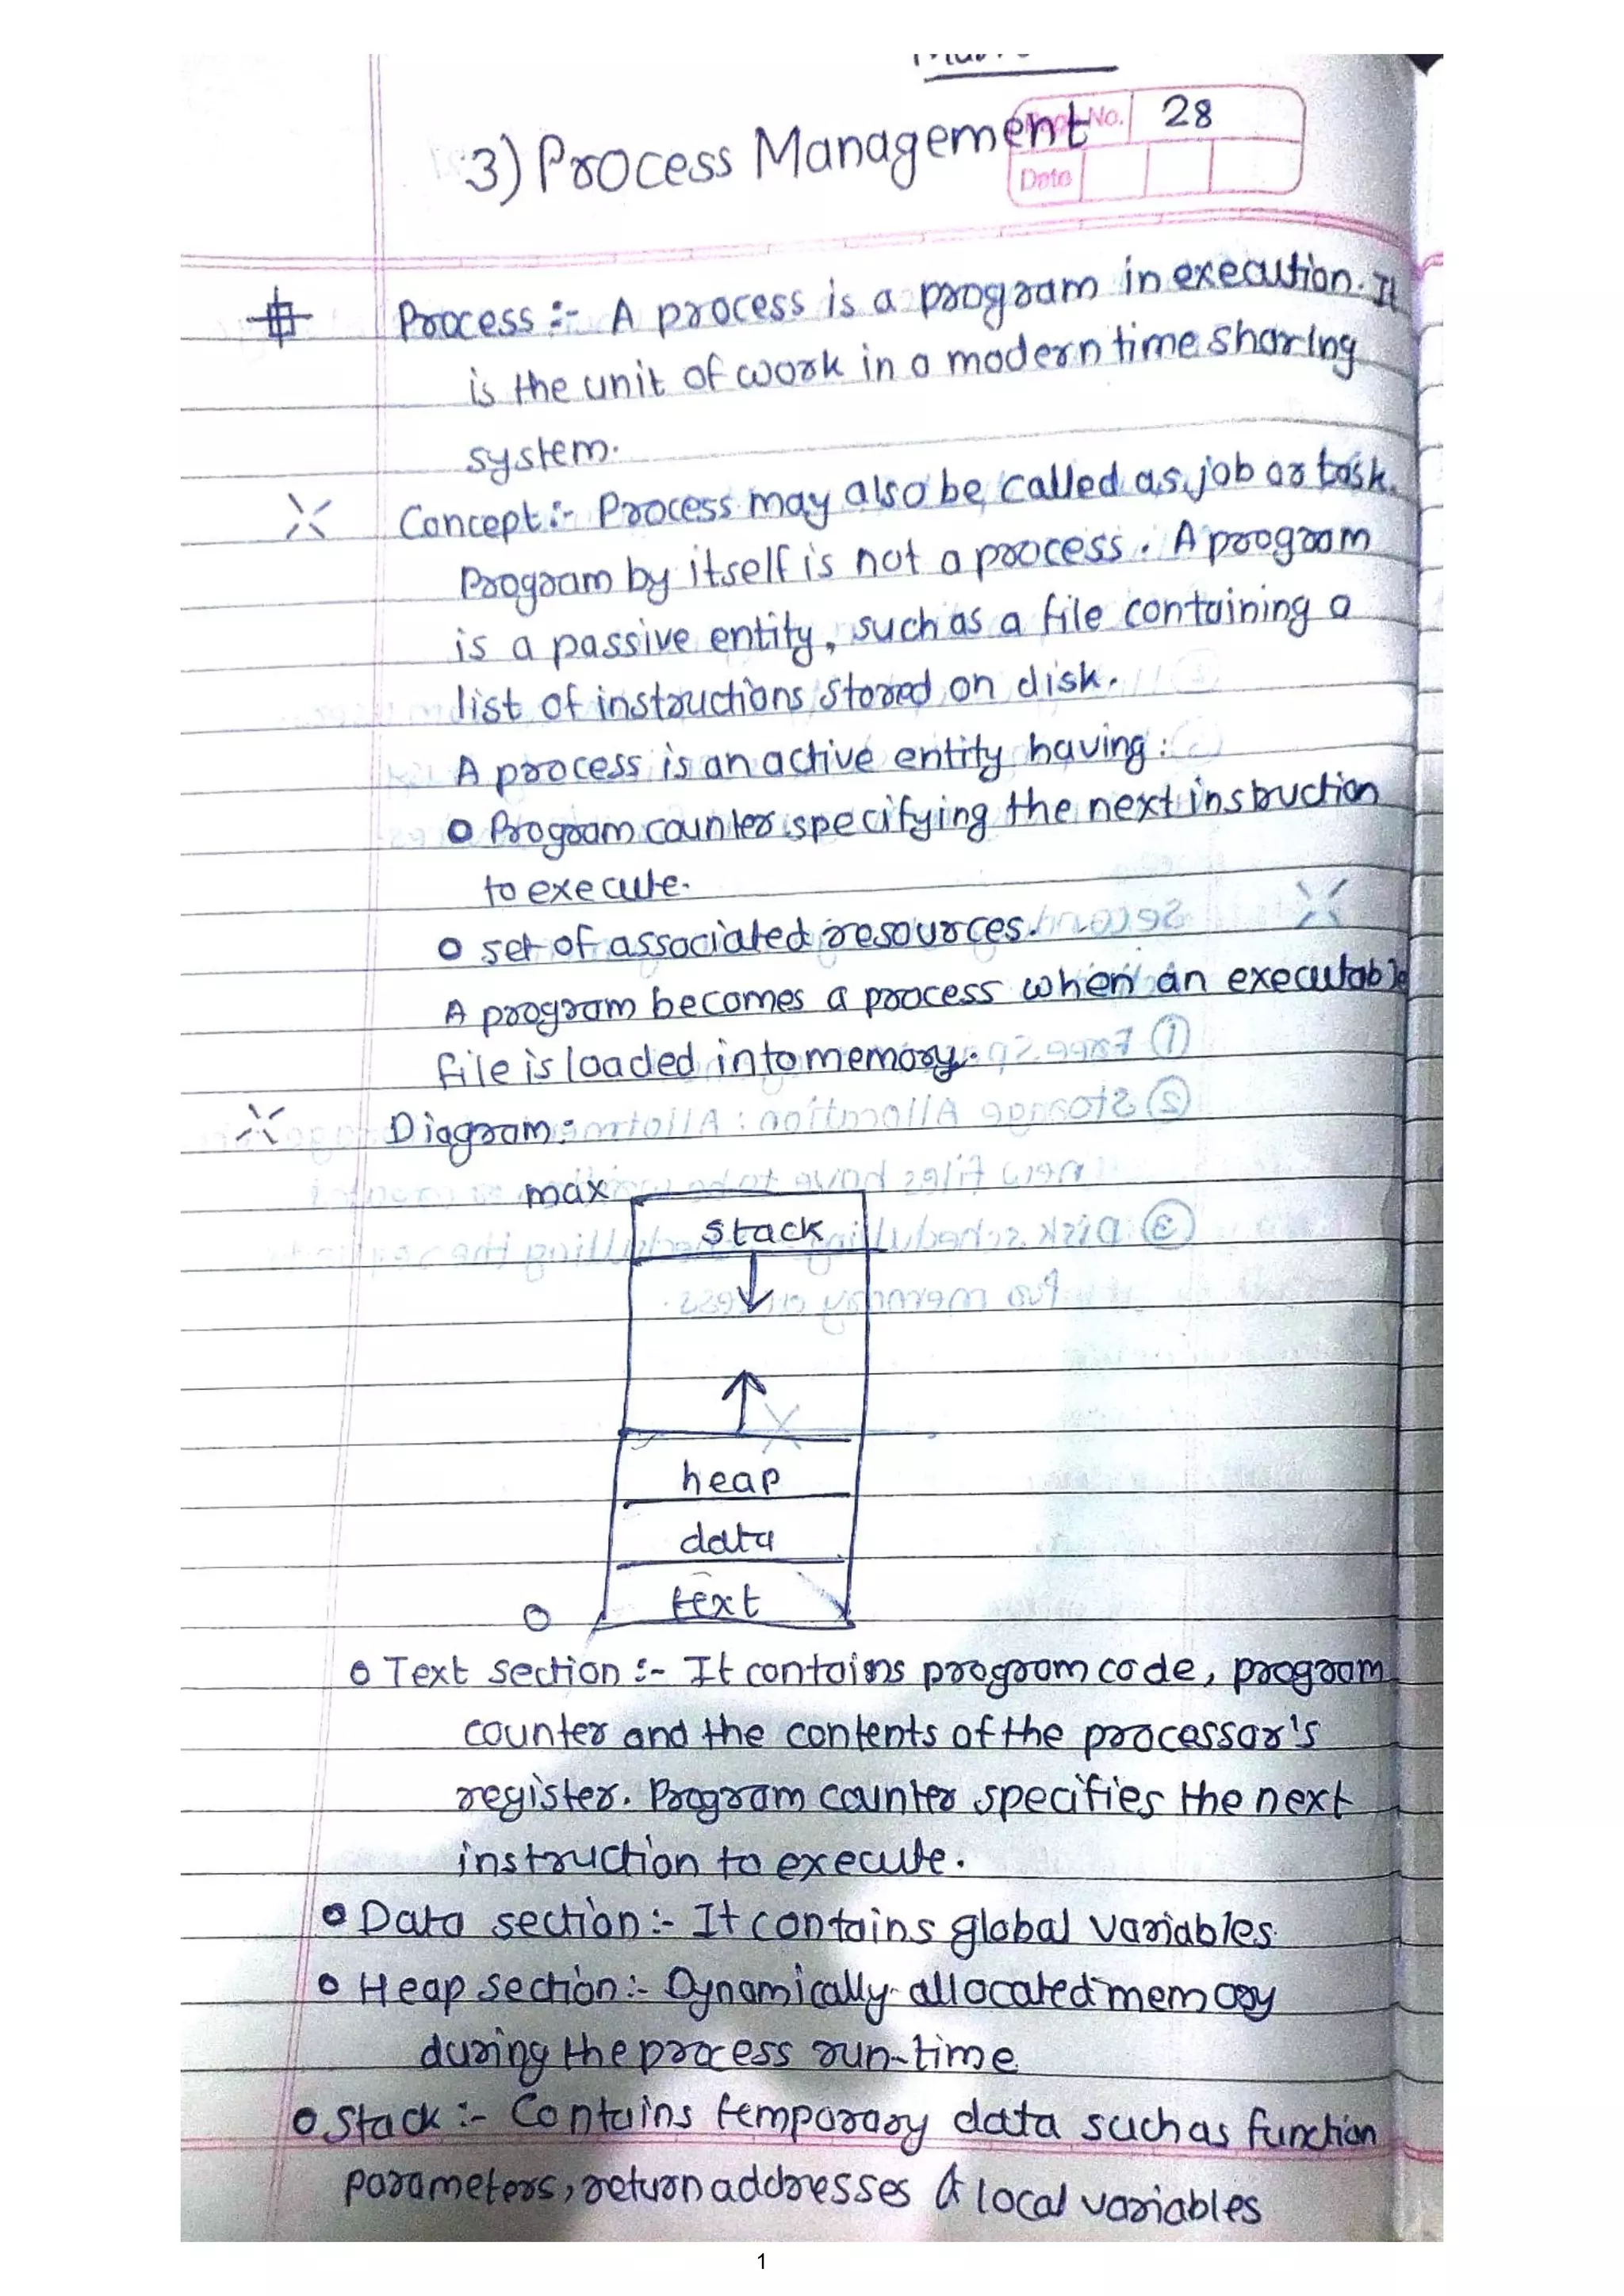 Page No. 28
Date
3) Process Management
Process :- A process is a program in execution. It
is the unit of work in a modern time sharing
system.
Concept :- Process may also be called as job or task.
Program by itself is not a process. A program
is a passive entity, such as a file containing a
list of instructions stored on disk.
A process is an active entity having :
o Program counter specifying the next instruction
to execute.
o set of associated resources.
A program becomes a process when an executable
file is loaded into memory.
Diagram :
max
stack
heap
data
text
0
o Text section :- It contains program code, program
counter and the contents of the processor's
register. Program counter specifies the next
instruction to execute.
o Data section :- It contains global variables.
o Heap section :- Dynamically allocated memory
during the process run-time
o Stack :- Contains temporary data such as function
parameters, return addresses & local variables
1